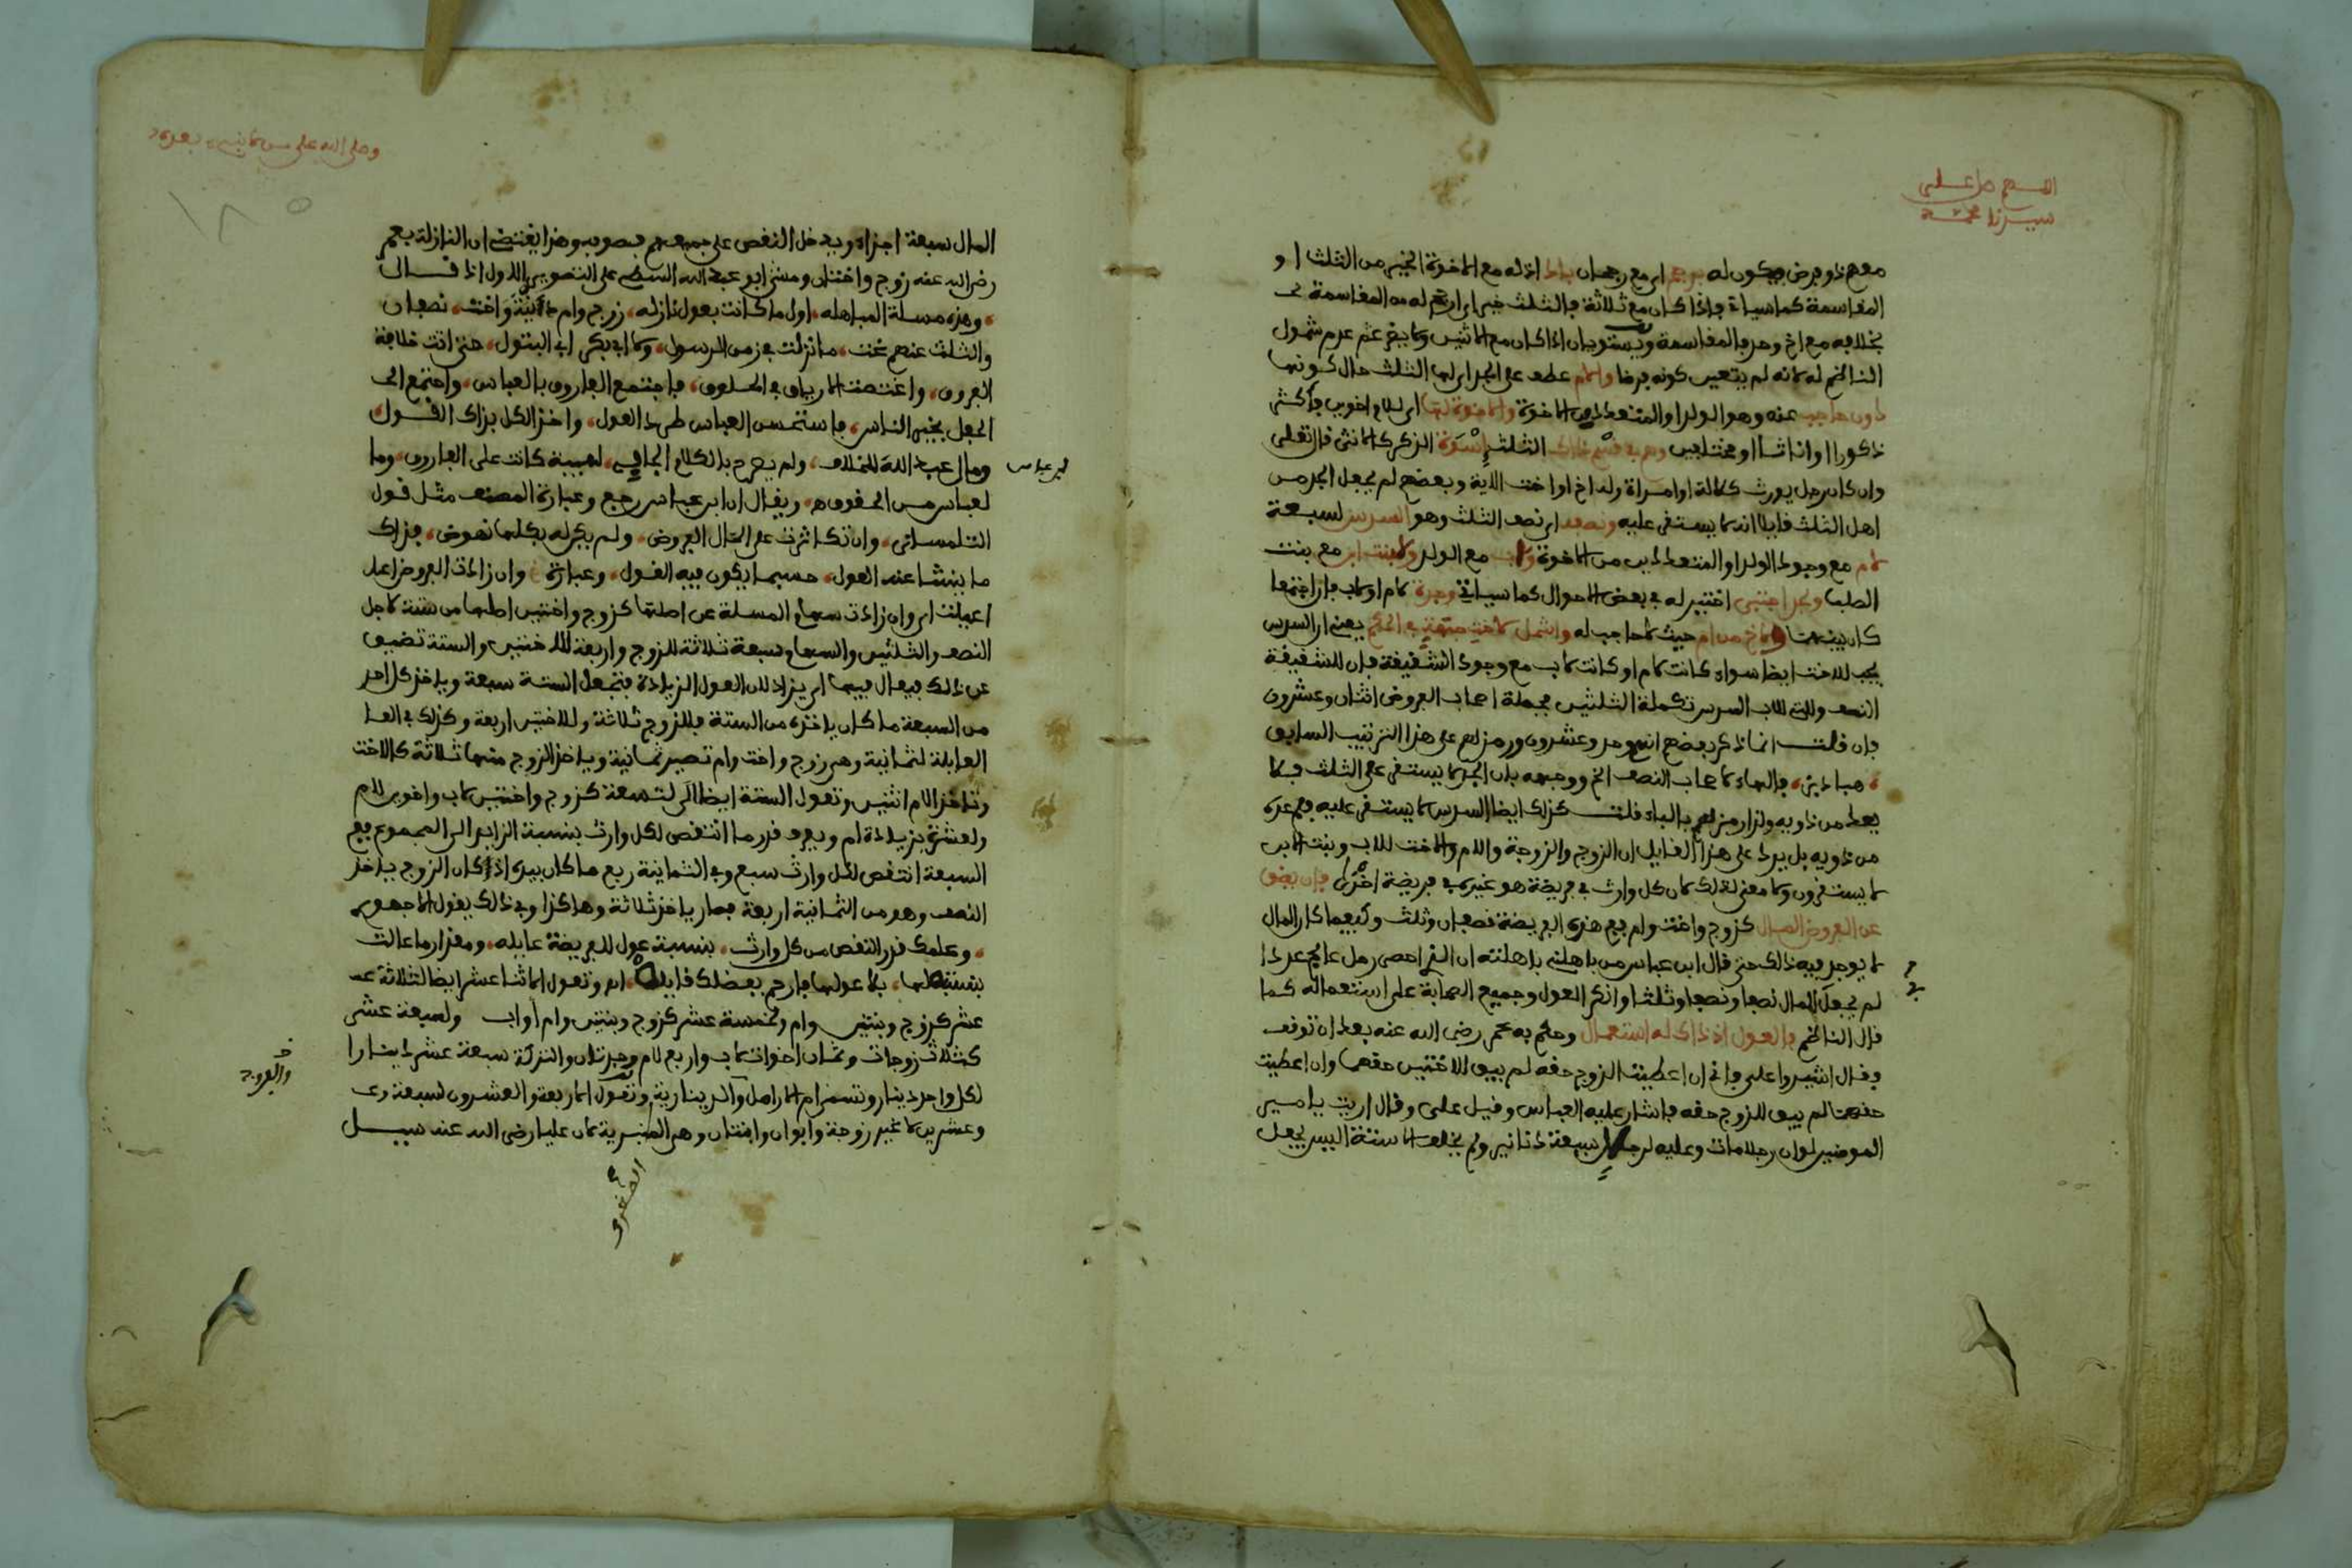 اللهم صل على
سيدنا محمد
معهم ذو فرض فيكون له مرجم اي مع رجحان باذا اذ له مع الاخوة الخير من الثلث او
المقاسمة كما سياتي فاذا كان مع ثلاثة فالثلث خير اي ارجح له من المقاسمة
بخلافه مع اخ وحد فالمقاسمة ويستويان اذا كان مع اثنين ولا يقدر عثم عدم شمول
الناظم له لانه لم يتعين كونه فرضا والام عطف على الجد اي لها الثلث حال كونها
دون حاجب عنه وهو الولد او المتعدد من الاخوة والاخوة لها اي للام اخوين فاكثر
ذكورا او اناثا او مختلفين وهم في قسم ذاك الثلث اسوة الذكر كالانثى قال تعلى
وان كان رجل يورث كلالة او امراة وله اخ او اخت الاية وبعضهم لم يجعل الجد من
اهل الثلث قايلا انه لا يستقى عليه ونصفه اي نصف الثلث وهو السدس لسبعة
لام مع وجود الولد او المتعدد من الاخوة ولاب مع الولد ولبنت ابن مع بنت
الصلب ولجد اجتبي اختير له في بعض الاحوال كما سياتي وجدة لام او لاب فان اجتمعا
كان بينهما ولاخ من ام حيث لا حاجب له واشمل لاخت جهة في الحكم يعني ان السدس
يجب للاخت ايضا سواء كانت لام او كانت لاب مع وجود الشقيقة فان للشقيقة
النصف وللتي للاب السدس تكملة الثلثين فجملة اصحاب الفروض اثنان وعشرون
فان قلت انما ذكر بعضهم انهم وحد وعشرون ورمز لهم على هذا الترتيب السابق
هبادبز، فالهاء لاصحاب النصف الخ ووجهه بان الجد لا يستقى على الثلث فلا
يعد من ذويه ولذا رمز لهم بالباء قلت كذلك ايضا السدس لا يستقى عليه فلم عده
من ذويه بل يرد على هذا القايل ان الزوج والزوجة والام والاخت للاب وبنت الابن
لا يستقرون ولا معنى لذلك لان كل وارث في فريضة هو غيره في فريضة اخرى فان يضق
عن الفروض المال كزوج واخت وام ففي هذه الفريضة نصفان وثلث وليس كل المال
لا يوجد فيه ذلك حتى قال ابن عباس من باهلني باهلته ان الذي احصى رمل عالج عددا
لم يجعل المال نصفا ونصفا وثلثا وانكر العول وجميع الصحابة على استعماله كما
قال الناظم فالعول اذ ذاك له استعمال وحكم به عمر رضي الله عنه بعد ان توقف
وقال اشيروا علي فاني ان اعطيت الزوج حقه لم يبق للاختين حقهما وان اعطيت
حقهما لم يبق للزوج حقه فاشار عليه العباس وقيل على وقال اريت يا امير
المومنين لو ان رجلا مات وعليه لرجل سبعة دنانير ولم يخلف الا ستة اليس يجعل
وصلى الله على من لا نبي بعده
١٨٥
المال سبعة اجزاء ويدخل النقص على جميعهم فصوبه وهذا يقتضي ان النازلة بعمر
رضي الله عنه زوج واختان ومشى ابو عبد الله السطي على التصوير الاول اذ قال
وهذه مسلة المباهله، اول ما كانت بعول نازله، زوج وام وابنة واخت، نصفان
والثلث عنهم عنت، ما نزلت في زمن الرسول، ولا ابي بكر ابي البتول، حتى اتت خلافة
الفروق، واغتصت الارياق في الحلوق، فاجتمع الفاروق بالعباس، واجتمع الى
الجعل بخير الناس، فاستحسن العباس طرد العول، واخذ الكل بذاك القول
ومال عبد الله للخلاف، ولم يصرح بالكلام الجافي، لهيبة كانت على الفاروق، وما
ابن عباس
لعباس من الحقوق ه، ويقال ان ابن عباس رجع وعبارة المصنف مثل قول
التلمساني، وان تكاثرت على المال الفروض، ولم يكن له بكلها نهوض، فذاك
ما ينشا عنه العول، حسبما يكون فيه القول، وعبارة خ وان زادت الفروض اعل
اعيلت اي وان زادت سهام المسلة عن اصلها كزوج واختين اصلها من ستة لاجل
النصف والثلثين والسهام سبعة ثلاثة للزوج واربعة للاختين والستة تضيق
عن ذلك فيعال فيها اي يزاد لان العول الزيادة فتجعل الستة سبعة وياخذ كل احد
من السبعة ما كان ياخذه من الستة فللزوج ثلاثة وللاختين اربعة وكذلك في العا
العايلة لثمانية وهي زوج واخت وام تصير ثمانية وياخذ الزوج منها ثلاثة كالاخت
وتاخذ الام اثنين وتعول الستة ايضا الى لتسعة كزوج واختين لاب واخوين للام
ولعشرة بزيادة ام ويعرف قدر ما انتقص لكل وارث بنسبة الزايد الى المجموع ففي
السبعة انتقص لكل وارث سبع وفي الثمانية ربع ما كان بيده اذ كان الزوج ياخذ
النصف وهو من الثمانية اربعة فصار ياخذ ثلاثة وهاكذا وفي ذلك يقول الاجهوري
وعلمك قدر النقص من كل وارث، بنسبة عول للفريضة عايله، ومقدار ما عالت
بنسبتها لها، بلا عولها فارحم بفضلك قايله، اه وتعول الاثنا عشر ايضا لثلاثة عـ
عشر كزوج وبنتين وام ولخمسة عشر كزوج وبنتين وام واب ولسبعة عشر
كثلاث زوجات وثمان اخوات لاب واربع لام وجدتان والتركة سبعة عشر دينارا
لكل واحد دينار وتسمى ام الارامل والدينارية وتعول الاربعة والعشرون لسبعة وعـ
والفروج
وعشرين لا غير زوجة وابوان وابنتان وهي المنبرية لان عليا رضي الله عنه سيل